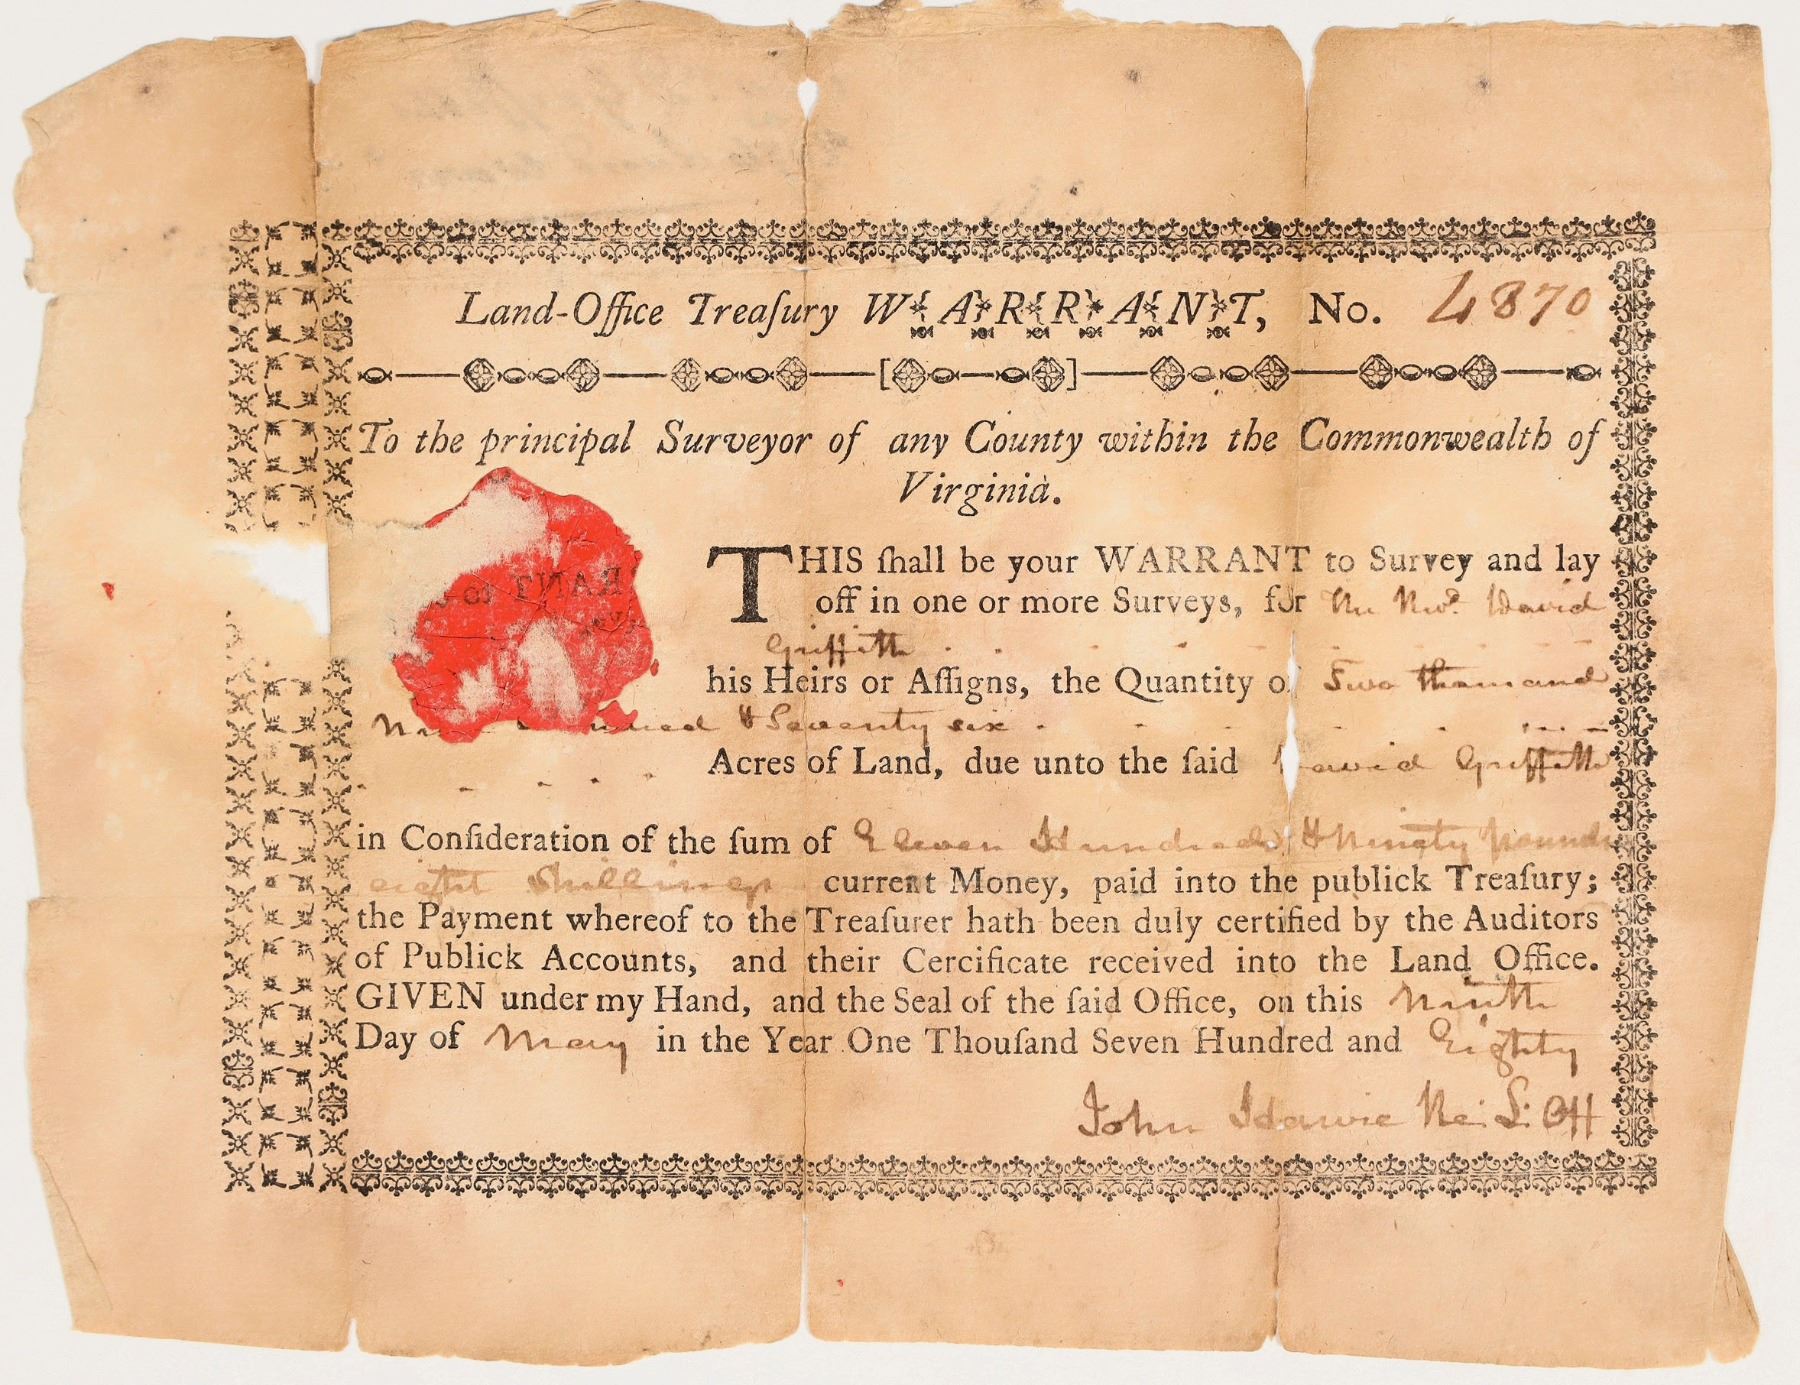 Land-Office Treaſury WARRANT, No. 4870
To the principal Surveyor of any County within the Commonwealth of
Virginia.
THIS ſhall be your WARRANT to Survey and lay
off in one or more Surveys, for The Revd. David
Griffith
his Heirs or Aſſigns, the Quantity of Two thousand
& Seventy six
Acres of Land, due unto the ſaid David Griffith
in Conſideration of the ſum of Eleven Hundred & Ninety pounds
eight Shillings current Money, paid into the publick Treaſury;
the Payment whereof to the Treaſurer hath been duly certified by the Auditors
of Publick Accounts, and their Cercificate received into the Land Office.
GIVEN under my Hand, and the Seal of the ſaid Office, on this Ninth
Day of May in the Year One Thouſand Seven Hundred and Eighty
John Hawie Re: L: Off